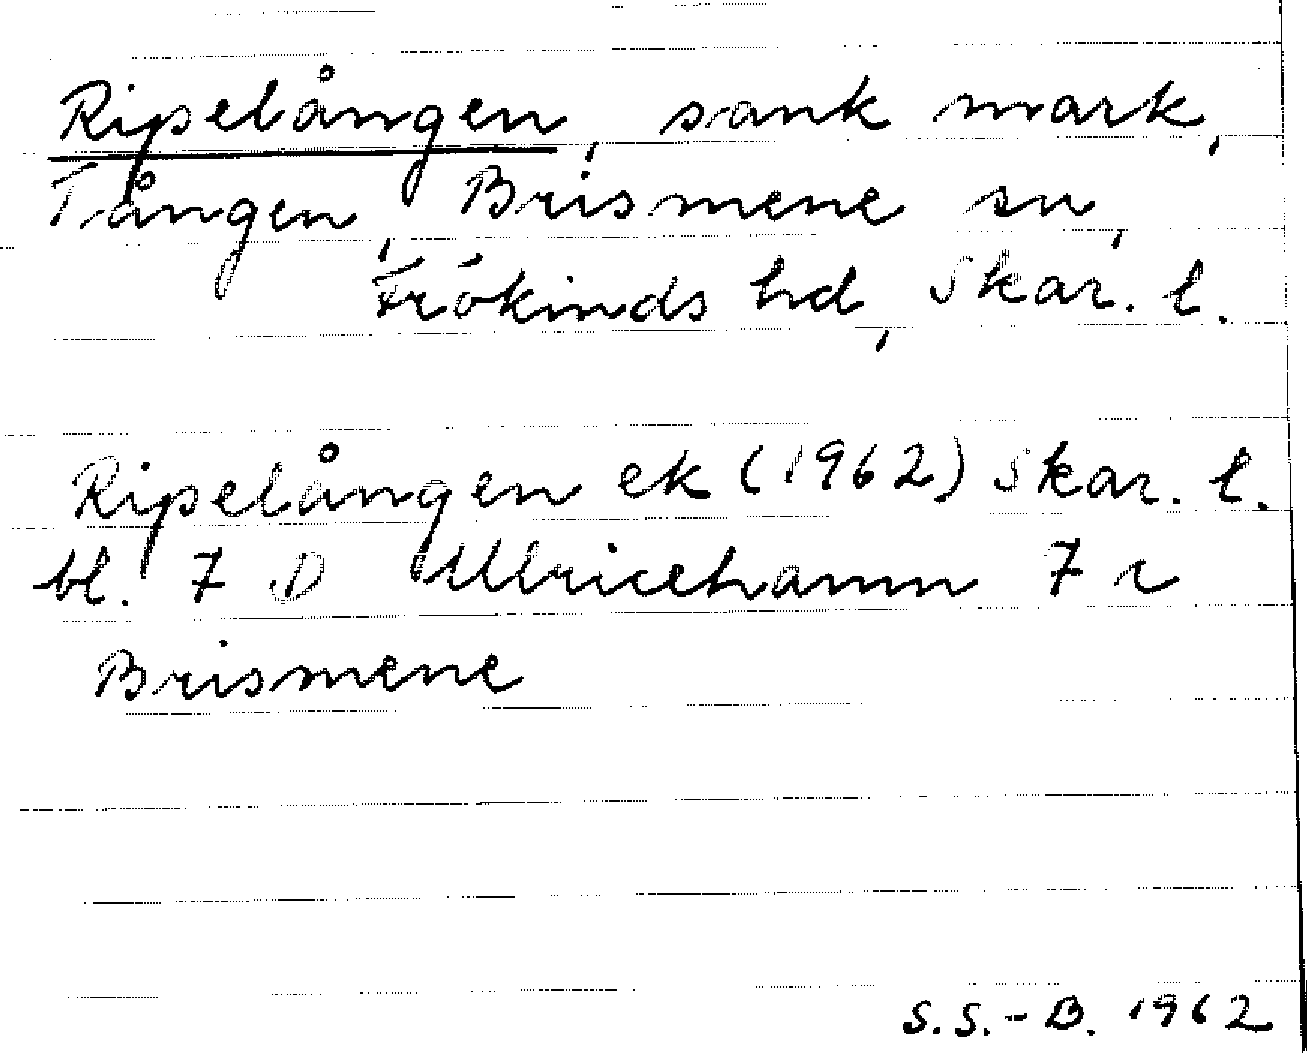 Ripelången, sank mark,
Tången, Brismene sn,
Frökinds hd, Skar. l.
Ripelången ek (1962) Skar. l.
bl. 7 D Ulricehamn 7 c
Brismene
S.S.-B. 1962